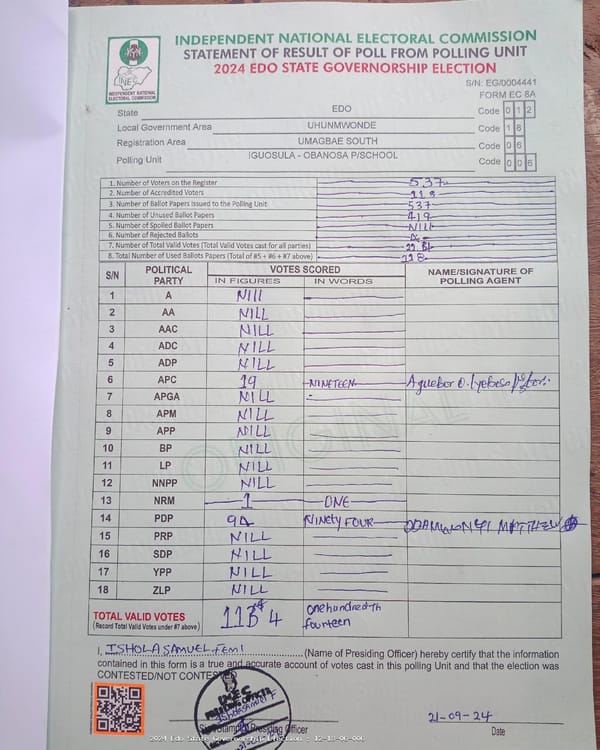 INEC
INDEPENDENT NATIONAL
ELECTORAL COMMISSION
INDEPENDENT NATIONAL ELECTORAL COMMISSION
STATEMENT OF RESULT OF POLL FROM POLLING UNIT
2024 EDO STATE GOVERNORSHIP ELECTION
S/N: EG/0004441
FORM EC 8A
State EDO Code 0 1 2
Local Government Area UHUNMWONDE Code 1 8
Registration Area UMAGBAE SOUTH Code 0 6
Polling Unit IGUOSULA - OBANOSA P/SCHOOL Code 0 0 6
1. Number of Voters on the Register 537
2. Number of Accredited Voters 118
3. Number of Ballot Papers issued to the Polling Unit 537
4. Number of Unused Ballot Papers 419
5. Number of Spoiled Ballot Papers NILL
6. Number of Rejected Ballots
7. Number of Total Valid Votes (Total Valid Votes cast for all parties)
8. Total Number of Used Ballots Papers (Total of #5 + #6 +#7 above) 118
S/N POLITICAL PARTY VOTES SCORED NAME/SIGNATURE OF POLLING AGENT
IN FIGURES IN WORDS
1 A NIll
2 AA NILL
3 AAC NILL
4 ADC NILL
5 ADP NILL
6 APC 19 NINETEEN Aguebor O.
7 APGA NILL
8 APM NILL
9 APP NILL
10 BP NILL
11 LP NILL
12 NNPP NILL
13 NRM 1 ONE
14 PDP 94 NINety FOUR MATTHEW
15 PRP NILL
16 SDP NILL
17 YPP NILL
18 ZLP NILL
ORIGINAL
TOTAL VALID VOTES
(Record Total Valid Votes under #7 above)
onehundred
fourteen
I, ISHOLA SAMUEL FEMI (Name of Presiding Officer) hereby certify that the information
contained in this form is a true and accurate account of votes cast in this polling Unit and that the election was
CONTESTED/NOT CONTESTED
INEC
21-09-24
Presiding Officer
Date
2024 Edo State Governorship Election